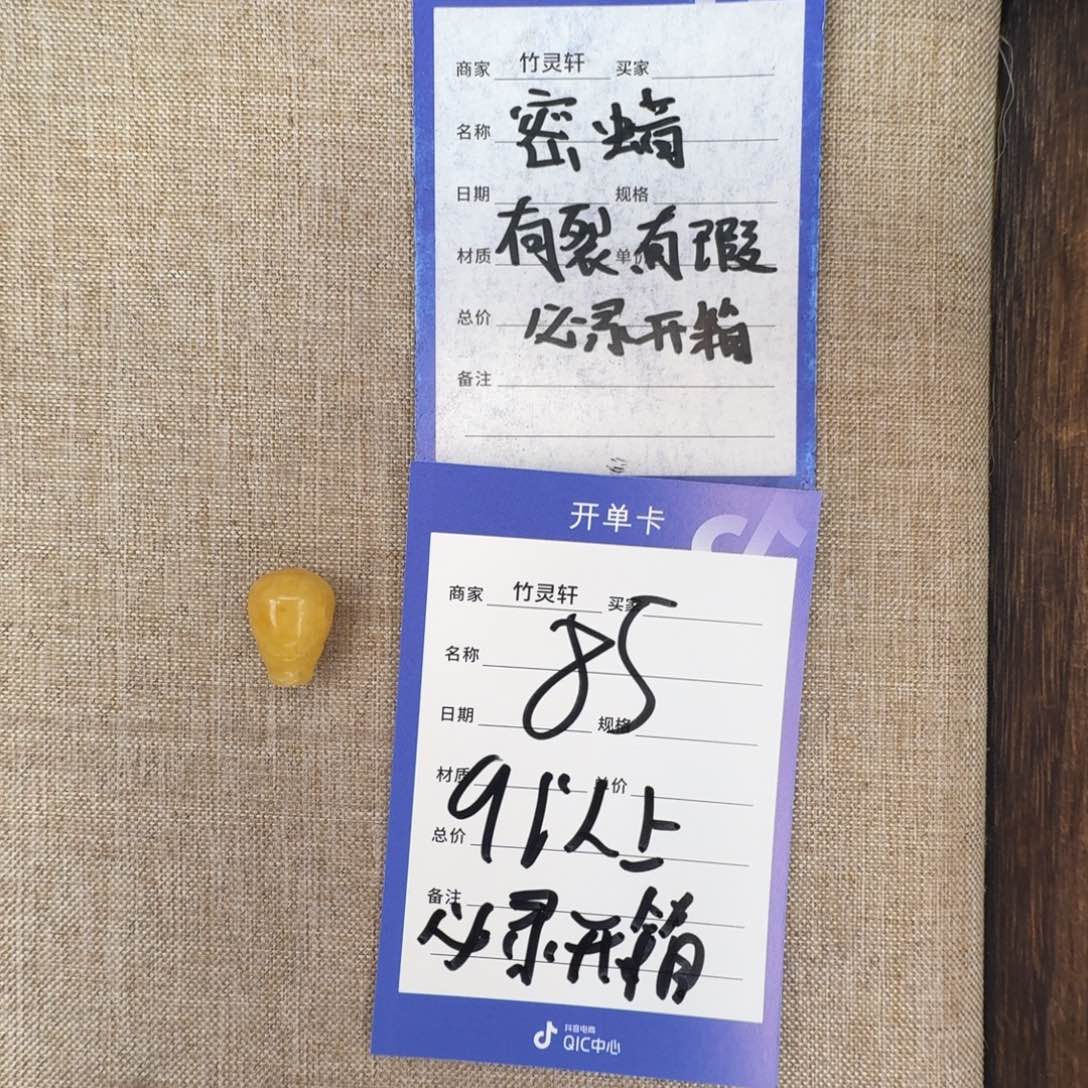 商家 竹灵轩 买家
名称 密蜡
日期 规格
材质 有裂有瑕 单价
总价 必录开箱
备注
开单卡
商家 竹灵轩 买家
85
名称
日期 规格
材质 单价
9以上
总价
备注
必录开箱
抖音电商
QIC中心